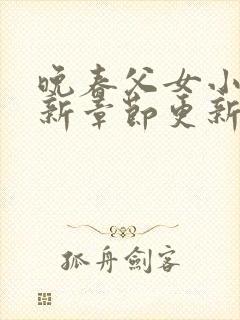 晚春父女小
新章节更新
孤舟劍客